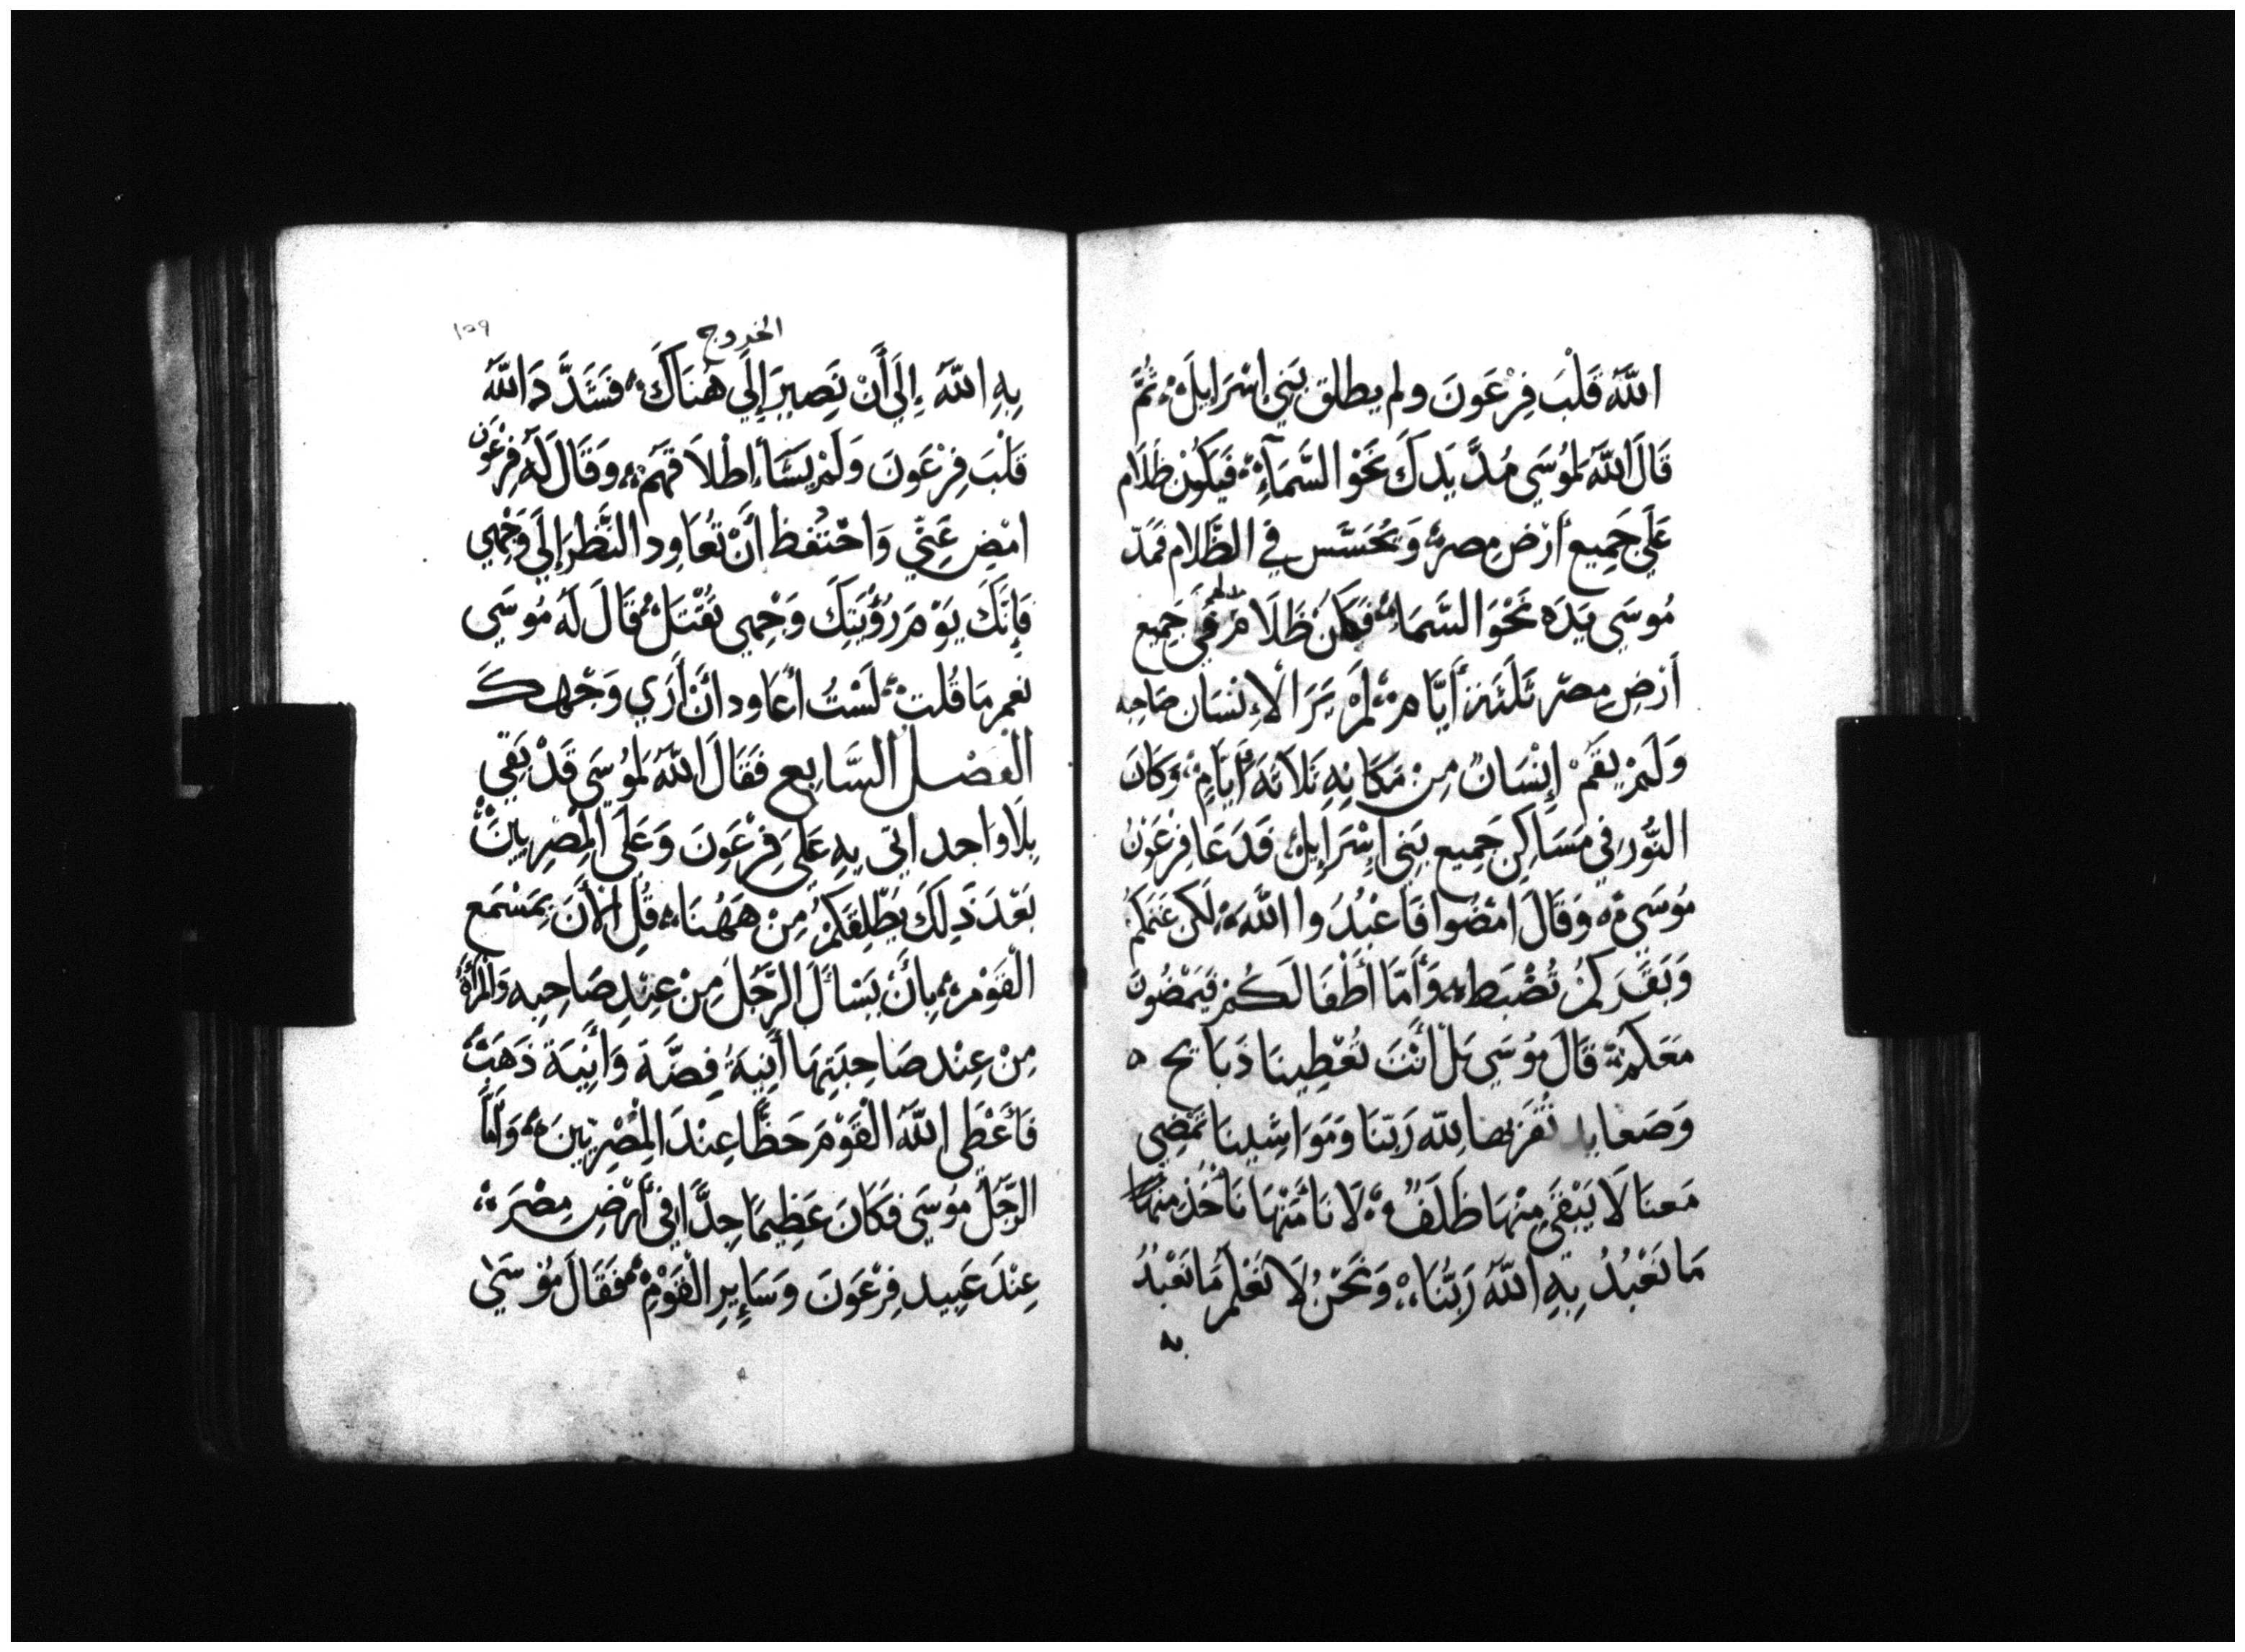 اللَّهُ قَلْبَ فِرْعَوْنَ ولم يطلق بَنِي إِسْرَايِلَ ثُمَّ
قَالَ اللَّهُ لِمُوسَي مُدَّ يَدَكَ نَحْوَ السَّمَآءِ فَيَكُونُ ظَلَام
عَلَي جَمِيع أَرْضِ مِصر وَيُحَسَّس فِي الظَّلَام فَمَدّ
مُوسَي يَدَه نَحْوَ السَّمَاءِ فَكَانَ ظَلَام فِي جَمِيع
أَرْضِ مِصْر ثَلَثَة أَيَّام لَمْ يَرَ الْإِنْسَان صَاحِبه
وَلَمْ يَقُمْ إِنْسَانٌ مِنْ مَكَانِهِ ثَلَاثَةَ أَيَّامٍ وَكَانَ
النُّورُ فِي مَسَاكِن جَمِيع بَنِي إِسْرَايِل فَدَعَا فِرْعَوْنُ
مُوسَي وَقَالَ امْضُوا فَاعْبُدُوا اللَّهَ لَكِن غَنَمكُمْ
وَبَقَركُمْ تُضْبَط وَأَمَّا أَطْفَالَكُمْ فَيَمْضُونَ
مَعَكُمْ قَالَ مُوسَي بَلْ أَنْتَ تُعْطِينَا ذَبَايح
وَصَعَايد نُقَرّبها لِلَّه رَبّنَا وَمَوَاشِينَا تَمْضِي
مَعنَا لَا يَبْقَي مِنْهَا ظَلَفٌ لَانَا مِنْهَا نَأْخُذ
مَا نَعْبُدُ بِهِ اللَّهَ رَبَّنَا وَنَحْنُ لَا نَعْلَم مَا نَعْبُدُ
به
الخروج
١٥٩
بِهِ اللَّهَ إِلَي أَنْ نَصِيرَ إِلَي هُنَاكَ فَشَدَّدَ اللَّهُ
قَلْبَ فِرْعَوْنَ وَلَمْ يَشَأْ إِطْلَاقَهُمْ وَقَالَ لَه فِرْعَوْن
امْضِ عَنِّي وَاحْتَفظ أَنْ تُعَاود النَّظَر إِلَي وَجْهِي
فَإِنَّكَ يَوْمَ رُؤْيَتِكَ وَجْهِي تُقْتَلْ قَالَ لَهُ مُوسَي
نعم مَا قُلت لَسْتُ أُعَاود أَنْ أَرَي وَجْهك
الْفَصْل السَّابِع فَقَالَ اللَّهُ لِمُوسَي قَدْ بَقِي
بَلَاوَاحد اتي بِهِ عَلَي فِرْعَوْنَ وَعَلَي الْمِصْرِيِّينَ
بَعْدَ ذَلِكَ يُطْلِقَكُمْ مِنْ هَهُنَا قُل الْآنَ بِمَسْمَع
الْقَوْم بِأَنْ يَسْأَلَ الرَّجُلُ مِنْ عِنْدِ صَاحِبِه وَالْمَرْأَة
مِنْ عِنْد صَاحِبَتِهَا أَنِيَةُ فِضَّة وَأَنِيَة ذَهَب
فَأَعْطَي اللَّهُ الْقَوْمَ حَظًّا عِنْدَ الْمِصْرِيِّينَ وَأَمَّا
الرَّجُل مُوسَي فَكَانَ عَظِيمًا جِدًّا فِي أَرْضِ مِصْرَ
عِنْدَ عَبِيد فِرْعَوْنَ وَسَايِرِ الْقَوْمِ فَقَالَ مُوسَي